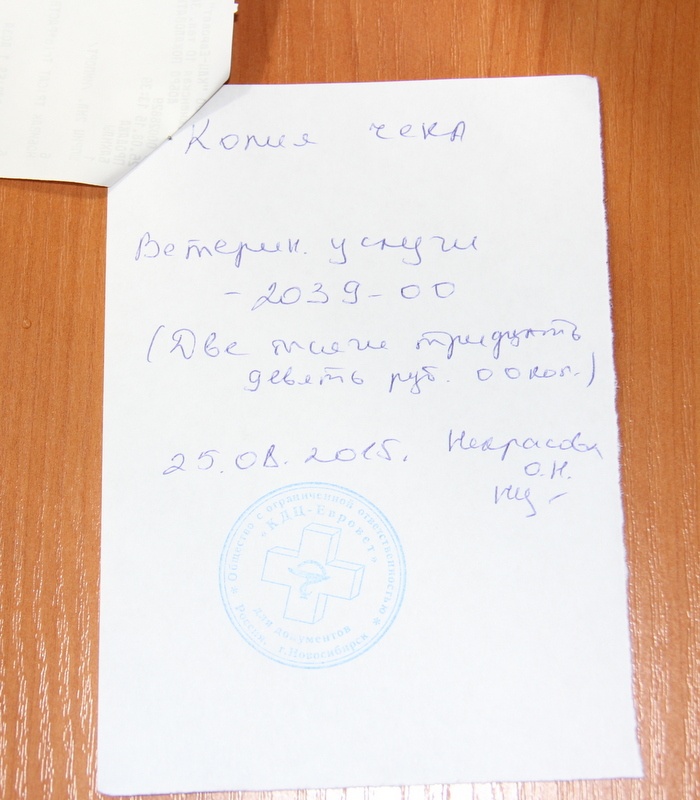 Копия чека
Ветерин. услуги
- 2039-00
(Две тысячи тридцать
девять руб. 00 коп.)
25.08.2015.
Некрасова
О.Н.
Общество с ограниченной ответственностью
"КДЦ-Евровет"
для документов
Россия, г.Новосибирск